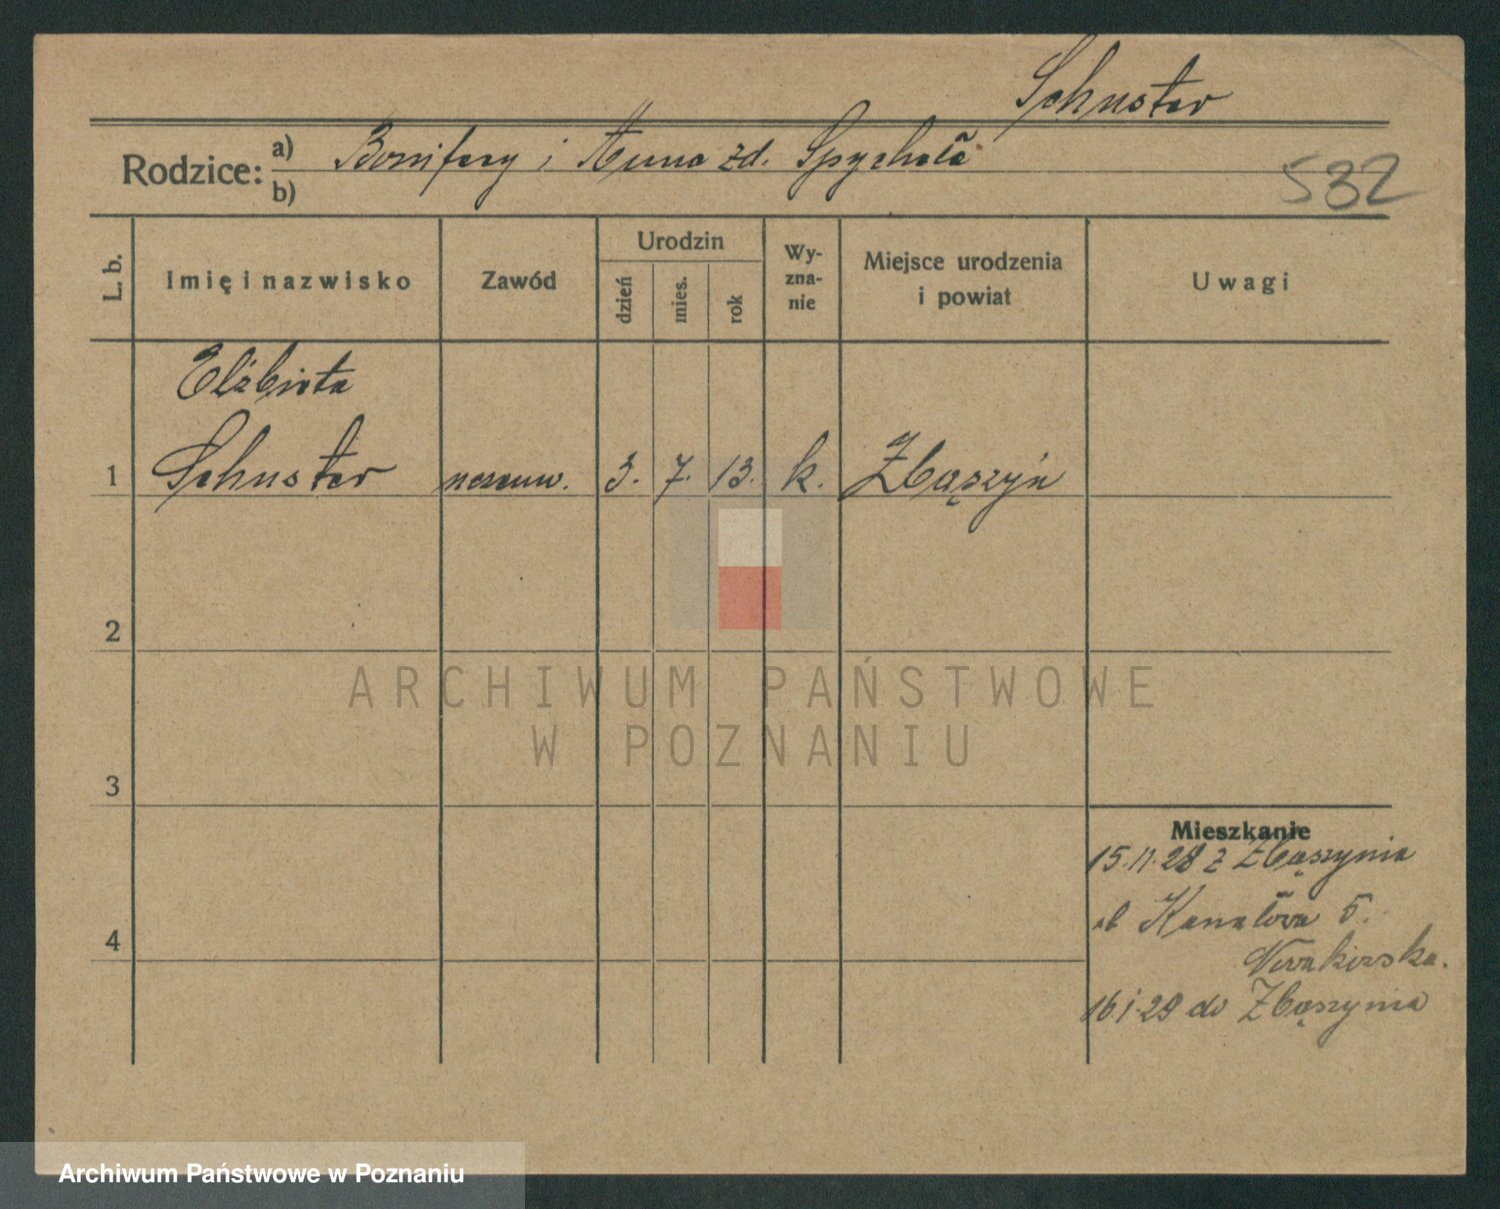 Schuster
Rodzice: a) Bonifacy i Anna zd. Spychała
b)
532
L. b. Imię i nazwisko Zawód Urodzin dzień mies. rok Wy-zna-nie Miejsce urodzenia i powiat Uwagi
Elżbieta
1 Schuster 3. 7. 13. k. Zbąszyń
2
ARCHIWUM PAŃSTWOWE
W POZNANIU
3
Mieszkanie
15.11.28 z Zbąszynia
Kanałowa 5.
4
16.1.29 do Zbąszynia
Archiwum Państwowe w Poznaniu